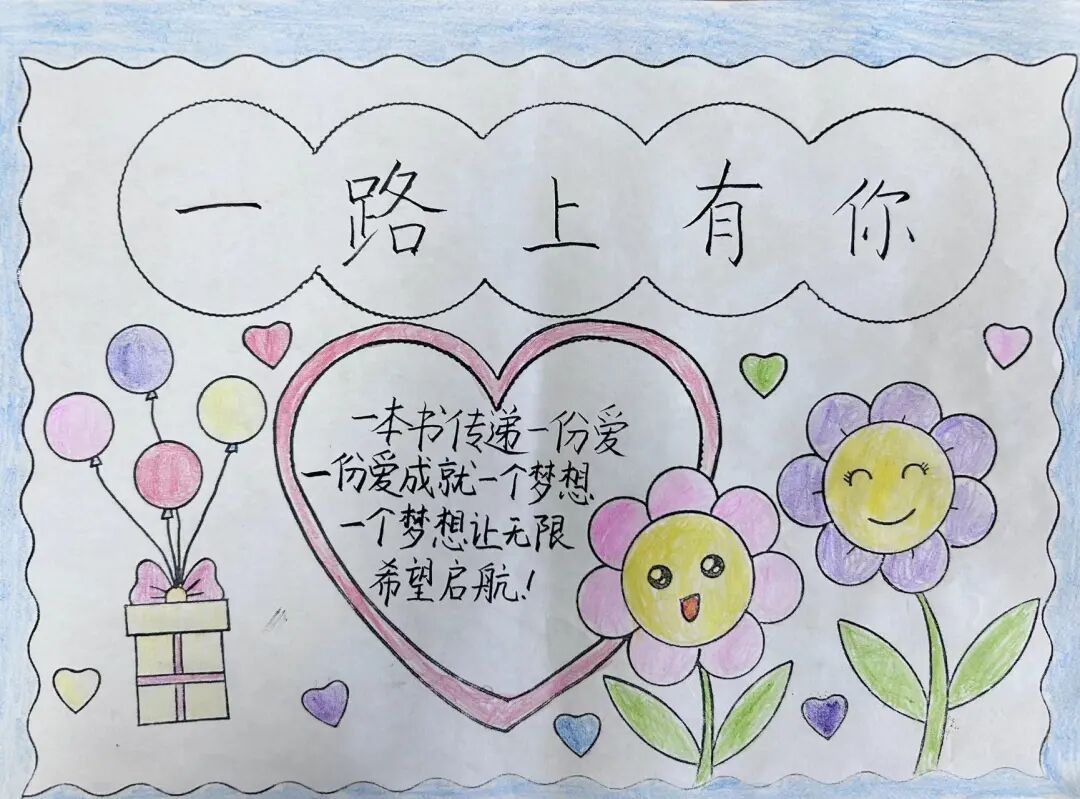 一路上有你
一本书传递一份爱
一份爱成就一个梦想
一个梦想让无限
希望启航!